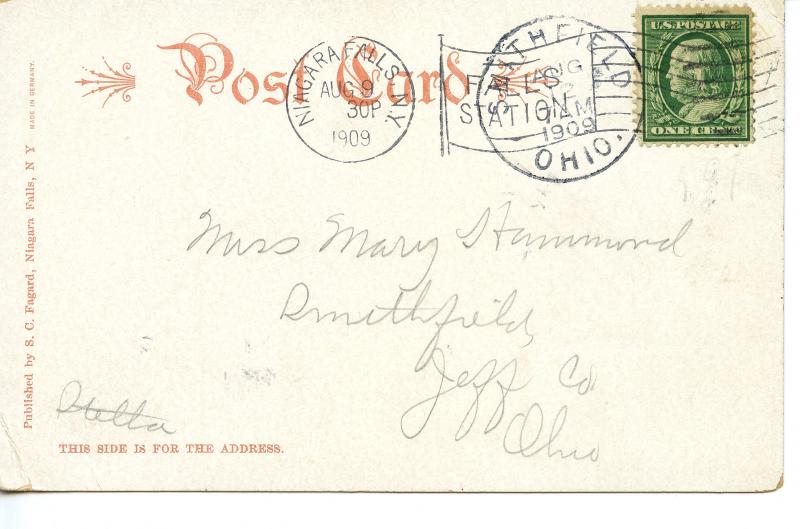 Post Card
MADE IN GERMANY.
NIAGARA FALLS, N.Y.
AUG 9
30P
1909
FALLS
STATION
SMITHFIELD
AUG
AM
1909
OHIO.
U.S. POSTAGE
ONE CENT
Miss Mary Hammond
Smithfield,
Jeff Co
Ohio
Stella
THIS SIDE IS FOR THE ADDRESS.
Published by S. C. Fagard, Niagara Falls, N Y